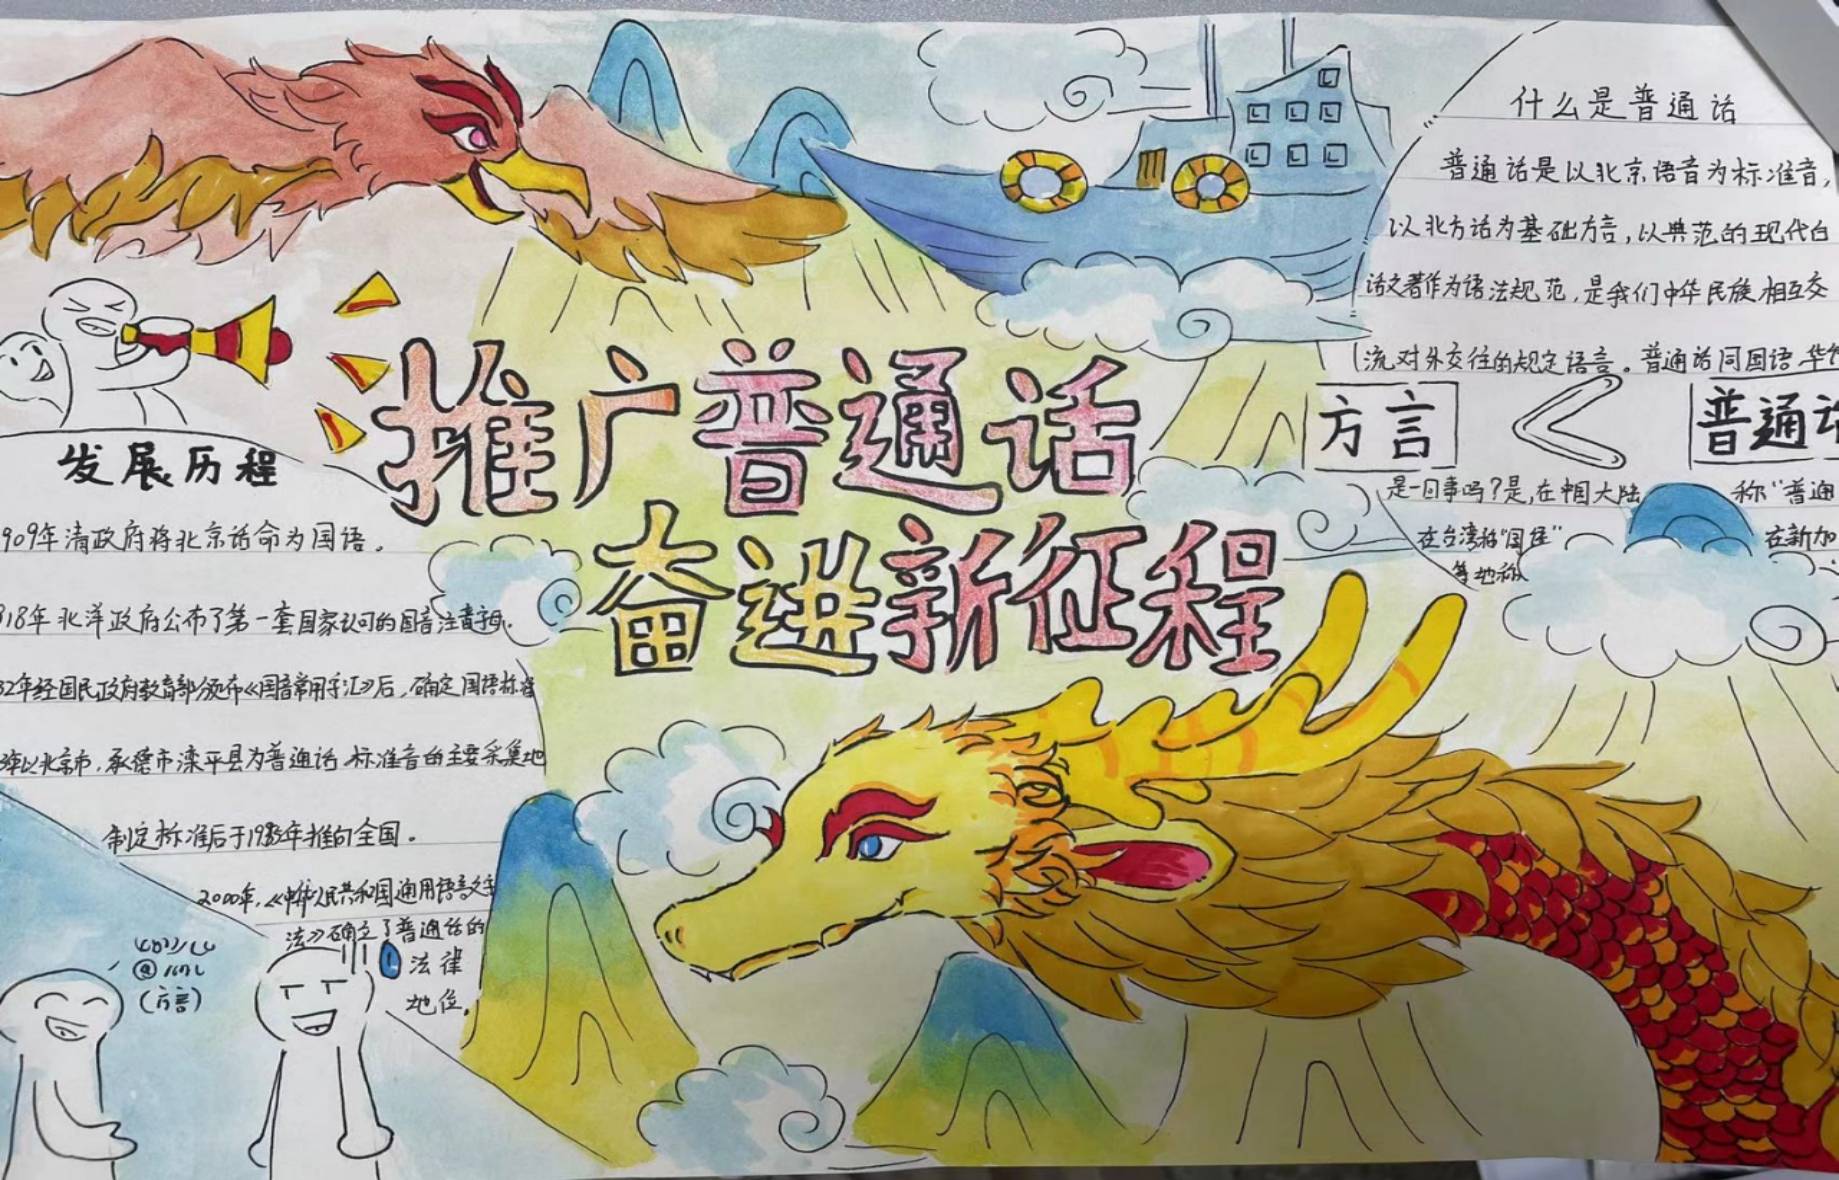 什么是普通话
普通话是以北京语音为标准音,
以北方话为基础方言,以典范的现代白
话文著作为语法规范,是我们中华民族相互交
流对外交往的规定语言。普通话同国语 华
方言 < 普通话
是一回事吗?是,在中国大陆 称“普通
在台湾称“国 ” 在新加
等地称
推广普通话
奋进新征程
发展历程
909年清政府将北京话命为国语。
918年北洋政府公布了第一套国家认可的国音注音字母.
32年经国民政府教育部颁布《国音常用字汇》后,确定国语标准
年以北京市,承德市滦平县为普通话标准音的主要采集地
制定标准后于1955年推向全国。
2000年,《中华人民共和国通用语言文字
法》确立了普通话的
法律
地位。
(方言)